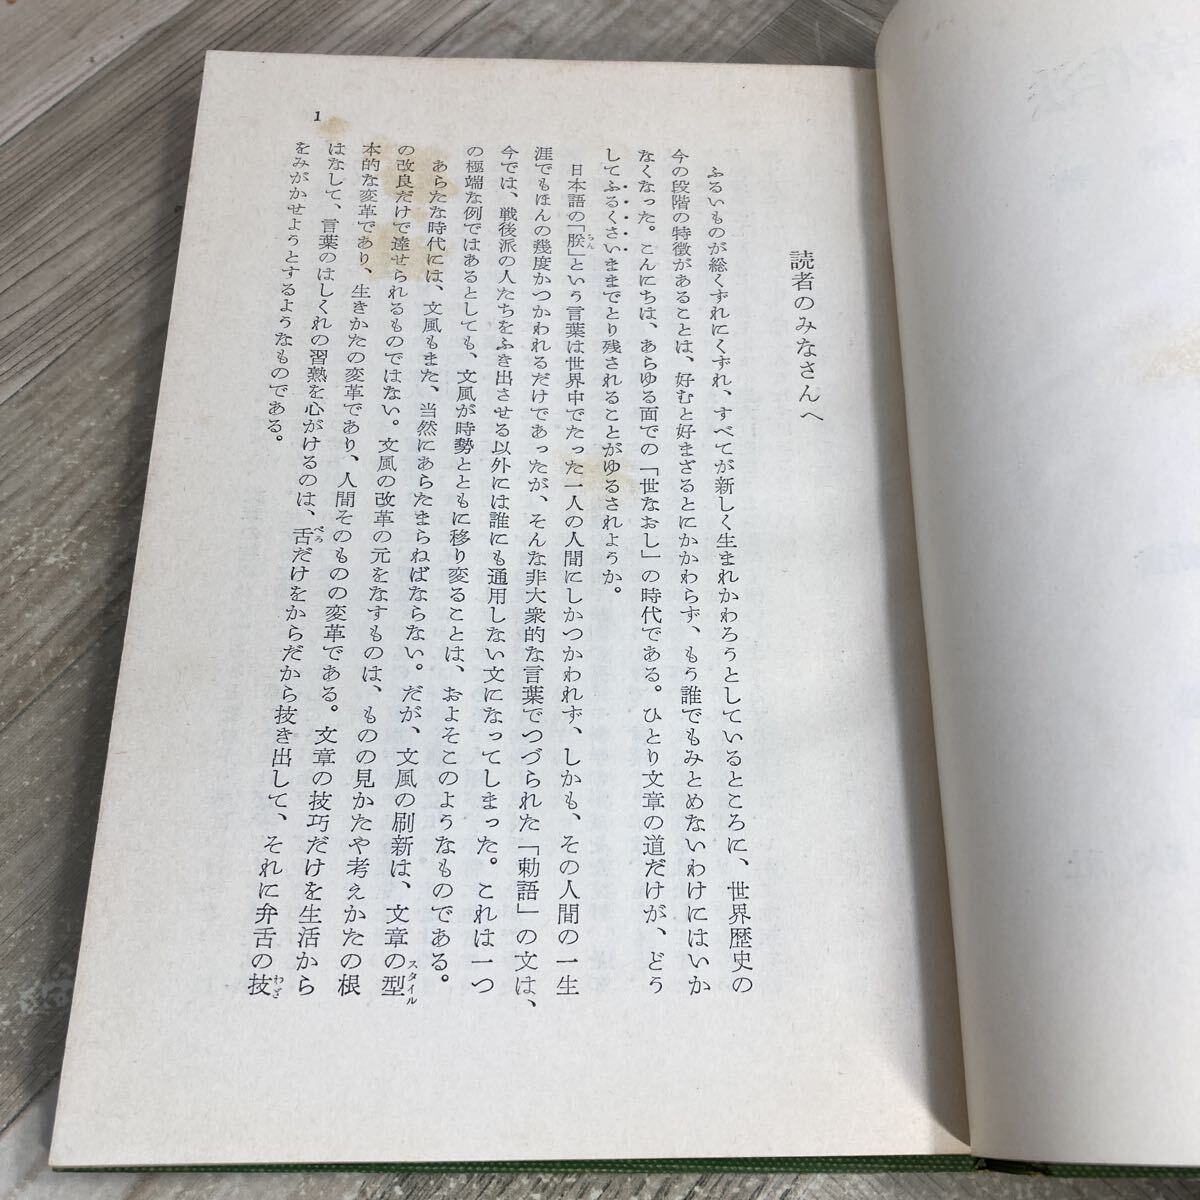 読者のみなさんへ
ふるいものが総くずれにくずれ、すべてが新しく生まれかわろうとしているところに、世界歴史の
今の段階の特徴があることは、好むと好まざるとにかかわらず、もう誰でもみとめないわけにはいか
なくなった。こんにちは、あらゆる面での「世なおし」の時代である。ひとり文章の道だけが、どう
してふるくさいままでとり残されることがゆるされようか。
日本語の「朕」という言葉は世界中でたった一人の人間にしかつかわれず、しかも、その人間の一生
涯でもほんの幾度かつかわれるだけであったが、そんな非大衆的な言葉でつづられた「勅語」の文は、
今では、戦後派の人たちをふき出させる以外には誰にも通用しない文になってしまった。これは一つ
の極端な例ではあるとしても、文風が時勢とともに移り変ることは、およそこのようなものである。
あらたな時代には、文風もまた、当然にあらたまらねばならない。だが、文風の刷新は、文章の型
の改良だけで達せられるものではない。文風の改革の元をなすものは、ものの見かたや考えかたの根
本的な変革であり、生きかたの変革であり、人間そのものの変革である。文章の技巧だけを生活から
はなして、言葉のはしくれの習熟を心がけるのは、舌だけをからだから抜き出して、それに弁舌の技
をみがかせようとするようなものである。
ちん
スタイル
べろ
わざ
1